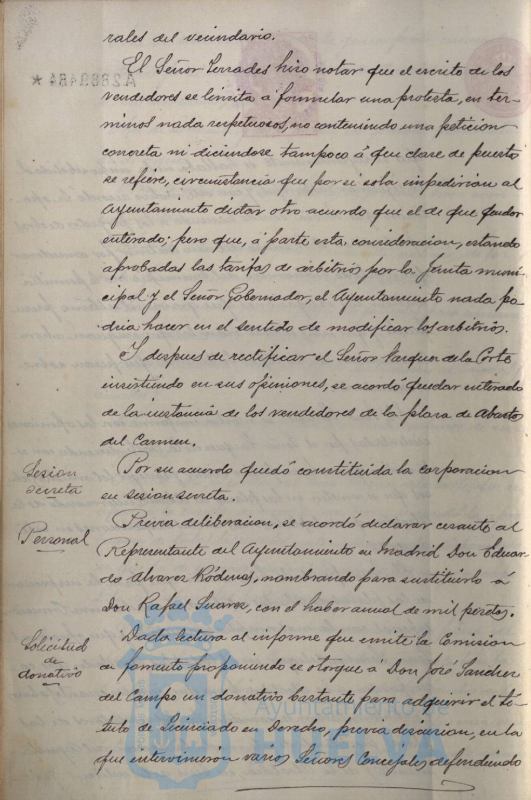 rales del vecindario.
El Señor Terrades hizo notar que el escrito de los
vendedores se limita á formular una protesta, en ter-
minos nada respetuosos, no conteniendo una peticion
concreta ni diciendose tampoco á que clase de puesto
se refiere, circunstancia que por sí sola impedirian al
Ayuntamiento dictar otro acuerdo que el de que quedar
enterado; pero que, á parte esta consideracion, estando
aprobadas las tarifas de arbitrios por la Junta muni-
cipal y el Señor Gobernador, el Ayuntamiento nada po
dria hacer en el sentido de modificar los arbitrios.
Y despues de rectificar el Señor Vazquez de la Corte
insistiendo en sus opiniones, se acordó quedar enterado
de la instancia de los vendedores de la plaza de Abastos
del Carmen.
Sesion
secreta
Por su acuerdo quedó constituida la corporacion
en sesion secreta.
Personal
Previa deliberacion, se acordó declarar cesante al
Representante del Ayuntamiento en Madrid Don Eduar
do Alvarez Ródenas, nombrando para sustituirlo á
Don Rafael Suarez, con el haber anual de mil pesetas.
Solicitud
de
donativo
Dada lectura al informe que emite la Comision
de fomento proponiendo se otorgue á Don José Sanchez
del Campo un donativo bastante para adquirir el tí-
tulo de Licenciado en Derecho, previa discusion, en la
que intervinieron varios Señores Concejales defendiendo
A2889484 ★
Ayuntamiento de
HUELVA